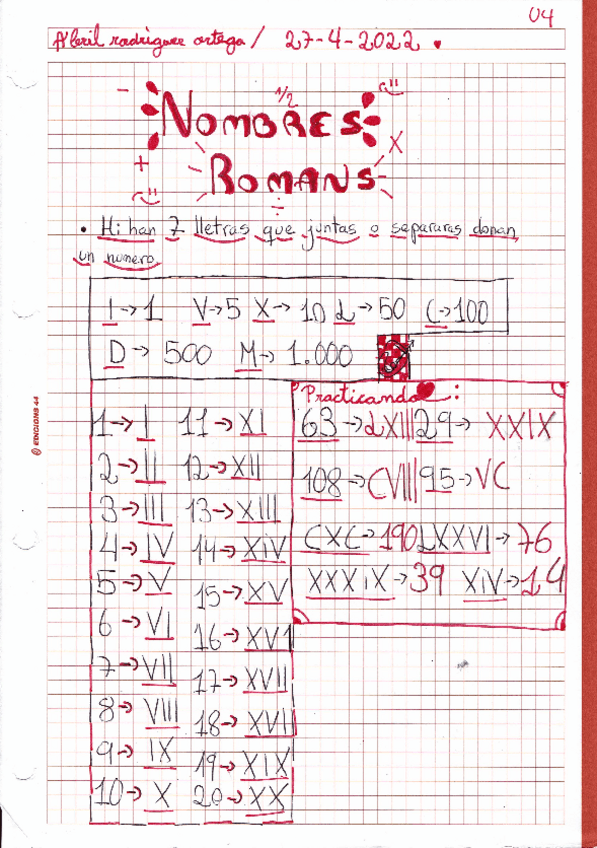 U4
Abril rodríguez ortega / 27-4-2022
1/2
NOMBRES
ROMANS
• Hi han 7 lletras que juntas o separaras donan
un numero
I→1 V→5 X→10 L→50 C→100
D→500 M→1.000
Practicando:
63→LXIII 29→XXIX
108→CVIII 95→VC
CXC→190 LXXVI→76
XXXIX→39 XIV→14
1→I 11→XI
2→II 12→XII
3→III 13→XIII
4→IV 14→XIV
5→V 15→XV
6→VI 16→XVI
7→VII 17→XVII
8→VIII 18→XVIII
9→IX 19→XIX
10→X 20→XX
© ENCIONS 44